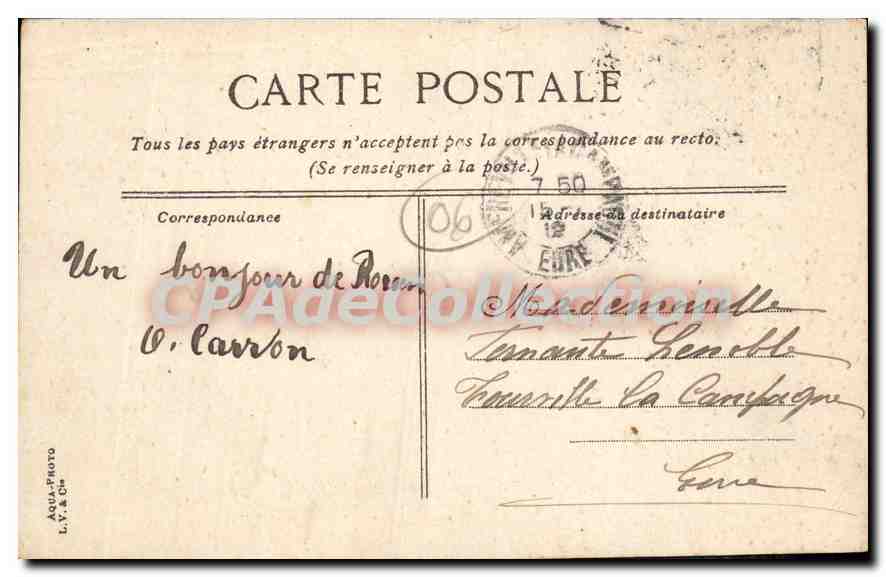 CARTE POSTALE
Tous les pays étrangers n'acceptent pas la correspondance au recto.
(Se renseigner à la poste.)
Correspondance
Adresse du destinataire
7 50
12
EURE
06
Un bonjour de Rouen
O. Carron
Mademoiselle
Fernante Lenoble
Tourville la Campagne
Eure
AQUA-PHOTO
L.V. & Cie
CPAdeCollection